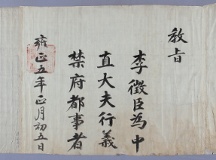 教旨
李徵臣為中
直大夫行義
禁府都事者
雍正五年正月初五日